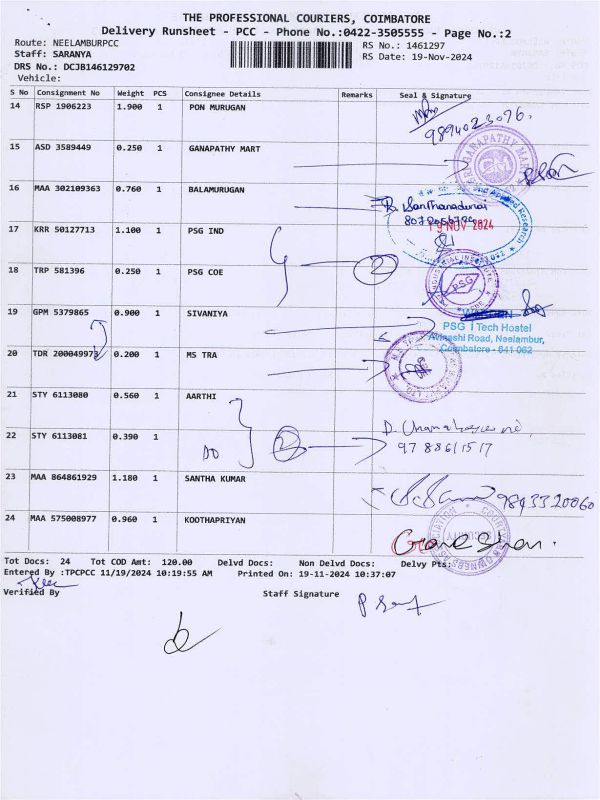 THE PROFESSIONAL COURIERS, COIMBATORE
Delivery Runsheet - PCC - Phone No.:0422-3505555 - Page No.:2
Route: NEELAMBURPCC
RS No.: 1461297
Staff: SARANYA
RS Date: 19-Nov-2024
DRS No.: DCJB146129702
Vehicle:
S No Consignment No Weight PCS Consignee Details Remarks Seal & Signature
14 RSP 1906223 1.900 1 PON MURUGAN
9894023076.
15 ASD 3589449 0.250 1 GANAPATHY MART
GANAPATHY MART
16 MAA 302109363 0.760 1 BALAMURUGAN
R. Santhanadurai
17 KRR 50127713 1.100 1 PSG IND
19 NOV 2024
18 TRP 581396 0.250 1 PSG COE
2
PSG
19 GPM 5379865 0.900 1 SIVANIYA
PSG i Tech Hostel
Avinashi Road, Neelambur,
Coimbatore - 641 062
20 TDR 200049973 0.200 1 MS TRA
21 STY 6113080 0.560 1 AARTHI
22 STY 6113081 0.390 1
DO 2
9788611517
23 MAA 864861929 1.180 1 SANTHA KUMAR
9843320060
24 MAA 575008977 0.960 1 KOOTHAPRIYAN
Ganeshan.
Tot Docs: 24 Tot COD Amt: 120.00 Delvd Docs: Non Delvd Docs: Delvy Pts:
Entered By :TPCPCC 11/19/2024 10:19:55 AM Printed On: 19-11-2024 10:37:07
Verified By Staff Signature